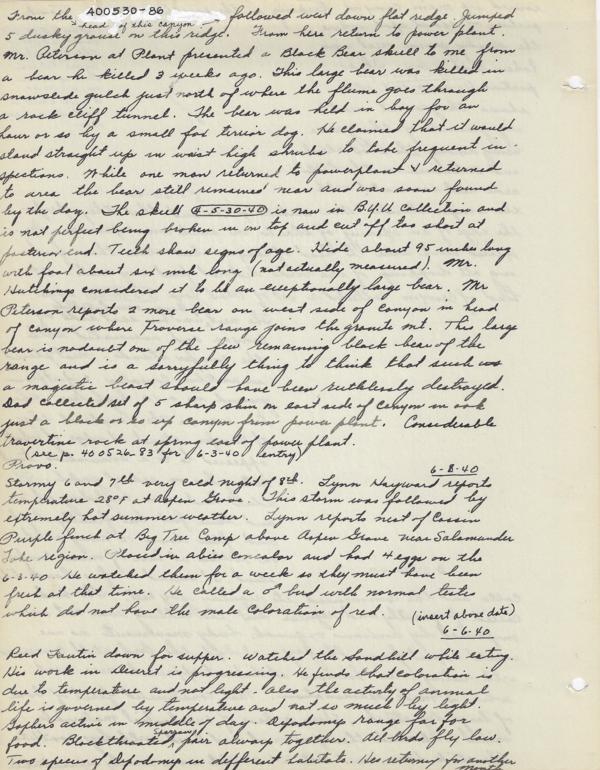 400530-86
From the head of this canyon followed west down flat ridge. Jumped
5 dusky grouse on this ridge. From here return to power plant.
Mr. Peterson at Plant presented a Black Bear skull to me from
a bear he killed 3 weeks ago. This large bear was killed in
snowslide gulch just north of where the flume goes through
a rock cliff tunnel. The bear was held in bay for an
hour or so by a small fox terrior dog. He claimed that it would
stand straight up in waist high shrubs to take frequent in-
spections. While one man returned to powerplant & returned
to area the bear still remained near and was soon found
by the dog. The skull 4-5-30-40 is now in B.Y.U collection and
is not perfect being broken in on top and cut off too short at
posterior end. Teeth show signs of age. Hide about 95 inches long
with foot about six inch long (not actually measured). Mr.
Hutchings considered it to be an exceptionally large bear. Mr
Peterson reports 2 more bear on west side of canyon in head
of canyon where Traverse range joins the granite mt. This large
bear is no doubt on of the few remaining black bear of the
range and is a sorryfully thing to think that such was
a magestic beast should have been ruthlessly destroyed.
Dad collected set of 5 sharp shin on east side of canyon in oak
just a block or so up canyon from power plant. Considerable
travertine rock at spring east of power plant.
(see p. 400526-83 for 6-3-40 entry)
Provo. 6-8-40
Stormy 6 and 7th very cold night of 8th. Lynn Hayward reports
temperature 28°F at Aspen Grove. This storm was followed by
extremely hot summer weather. Lynn reports nest of Cassin
Purple finch at Big Tree Camp above Aspen Grove near Salamander
Lake region. Placed in abies concolor and had 4 eggs on the
6-3-40. He watched them for a week so they must have been
fresh at that time. He called a ♂ bird with normal teste
which did not have the male coloration of red. (insert above date)
6-6-40
Reed Fautin down for supper. Watched the Sandhill while eating.
His work in Desert is progressing. He finds that coloration is
due to temperature and not light. Also the activity of animal
life is governed by temperature and not so much by light.
Gophers active in middle of day. Dipodomys range far for
food. Blackthroated sparrows pair always together. All birds fly low.
Two species of Dipodomys in different habitats. Hes returning for another
month